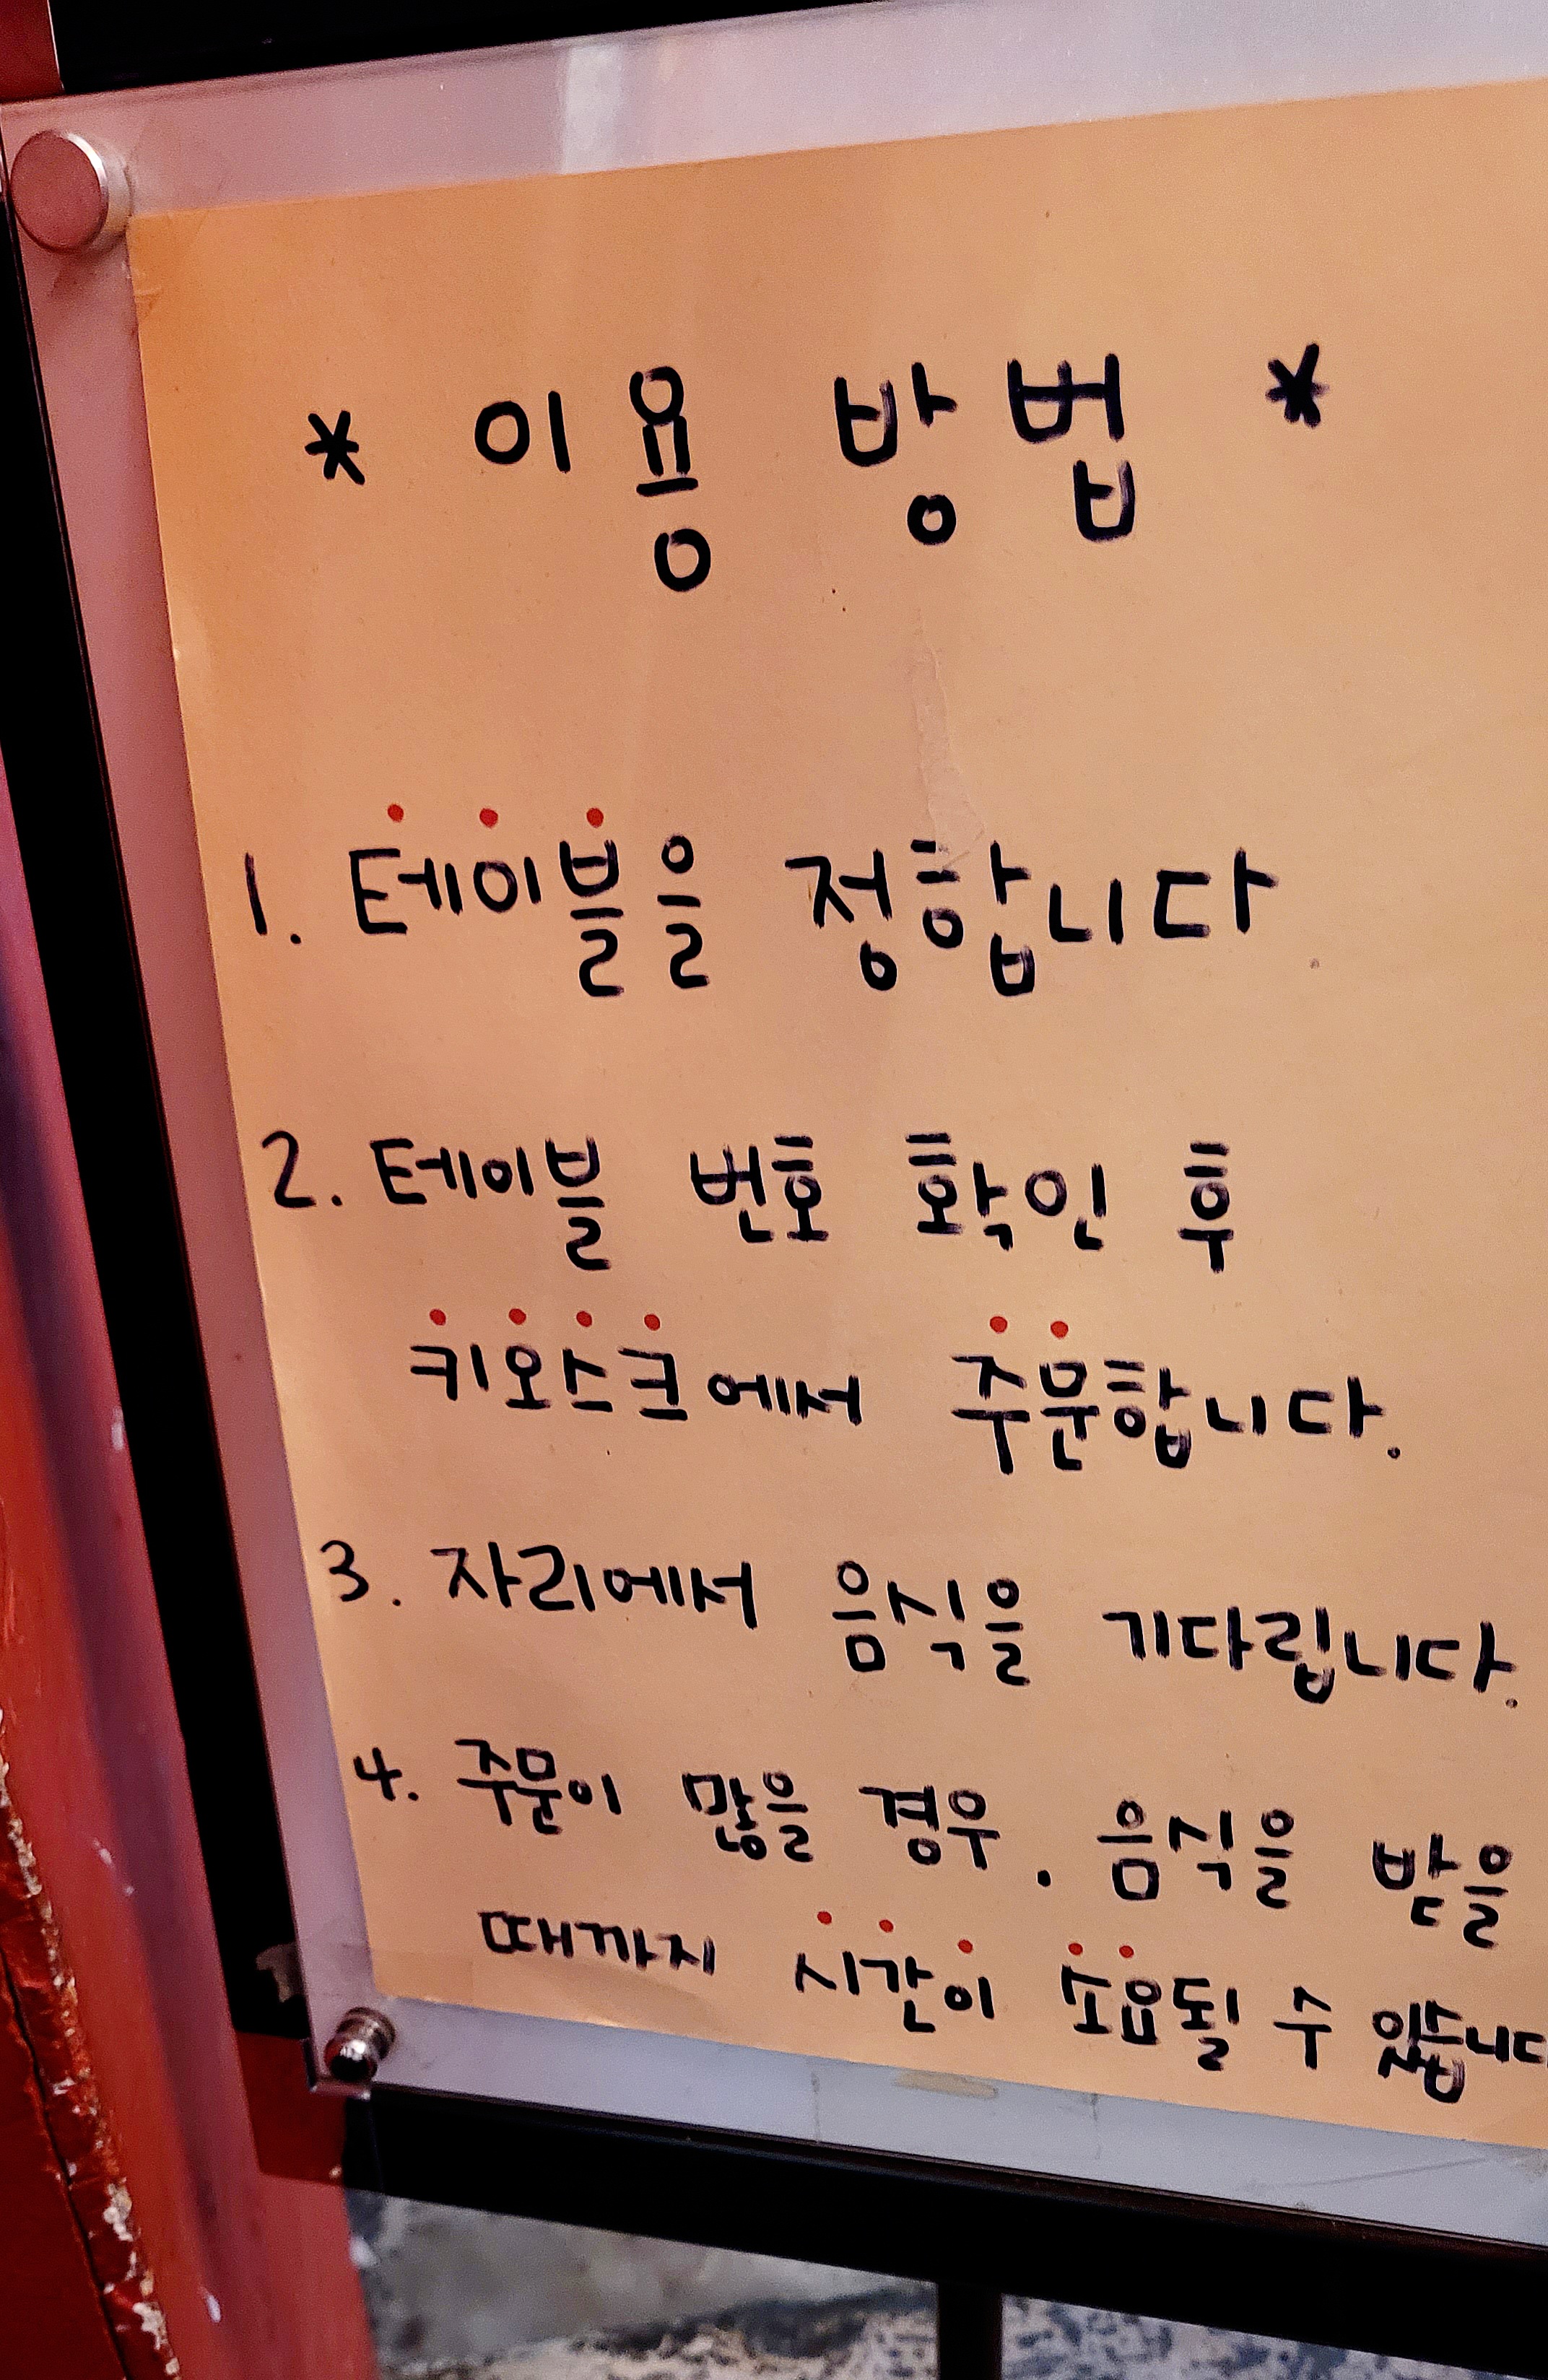 * 이용 방법 *
1. 테이블을 정합니다
2. 테이블 번호 확인 후
키오스크에서 주문합니다.
3. 자리에서 음식을 기다립니다.
4. 주문이 많을 경우. 음식을 받을
때까지 시간이 소요될 수 있습니다